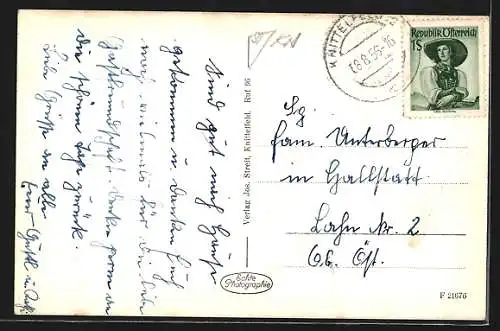 Sind gut nach Hause
gekommen u. danken Euch
nochmals für die liebe
Gastfreundschaft. Denken gerne an
die schönen Tage zurück.
Liebe Grüsse an alle
Eure
Verlag Jos. Streit, Knittelfeld. Ruf 96
Echte
Photographie
KNITTELFELD
18.8.56-16
Republik Österreich
1S
Fam. Unterberger
in Hallstatt
Lahn Nr. 2
Ob. Öst.
F 21676